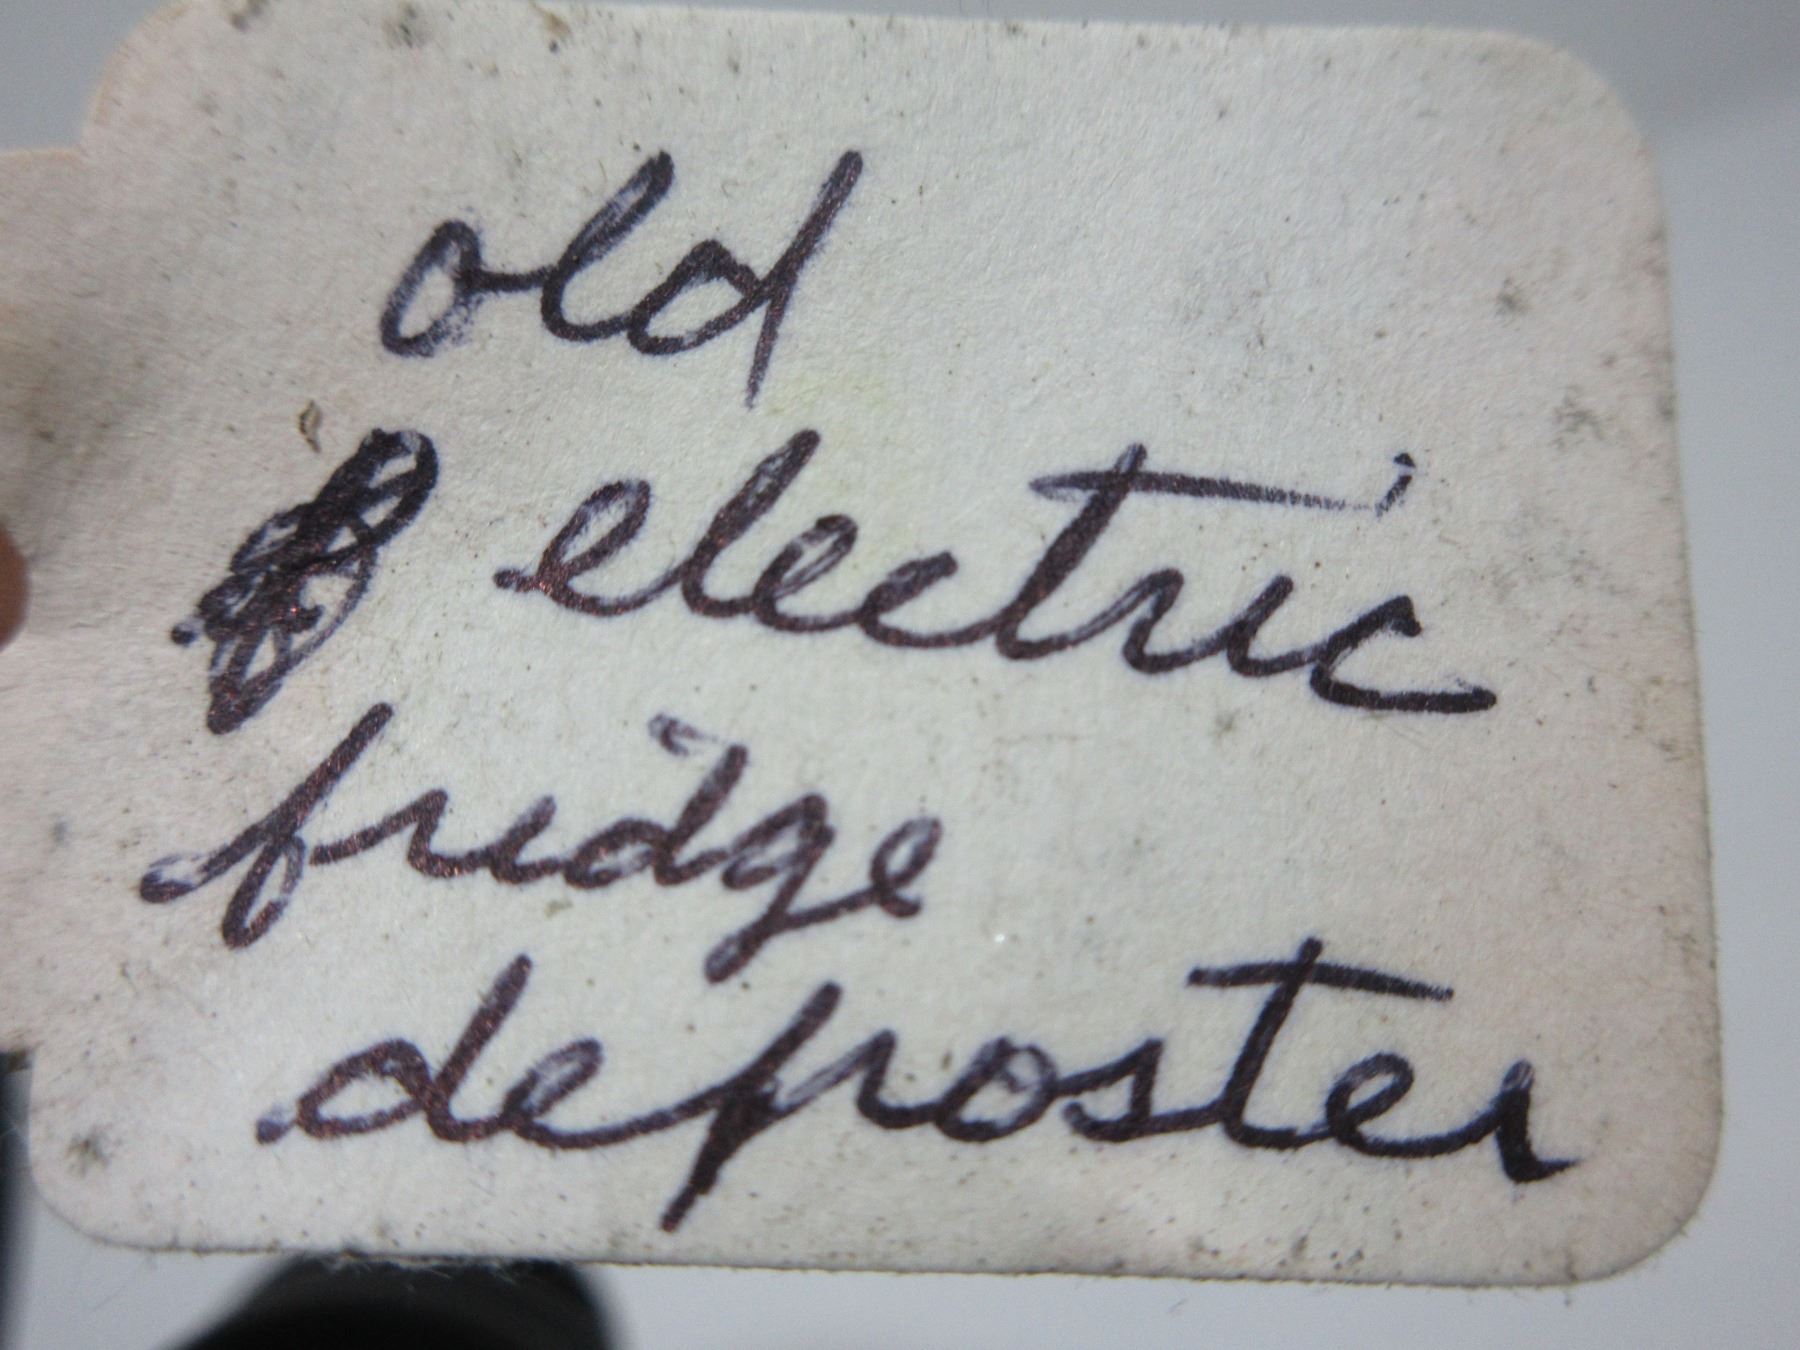 old
electric
fridge
deposter